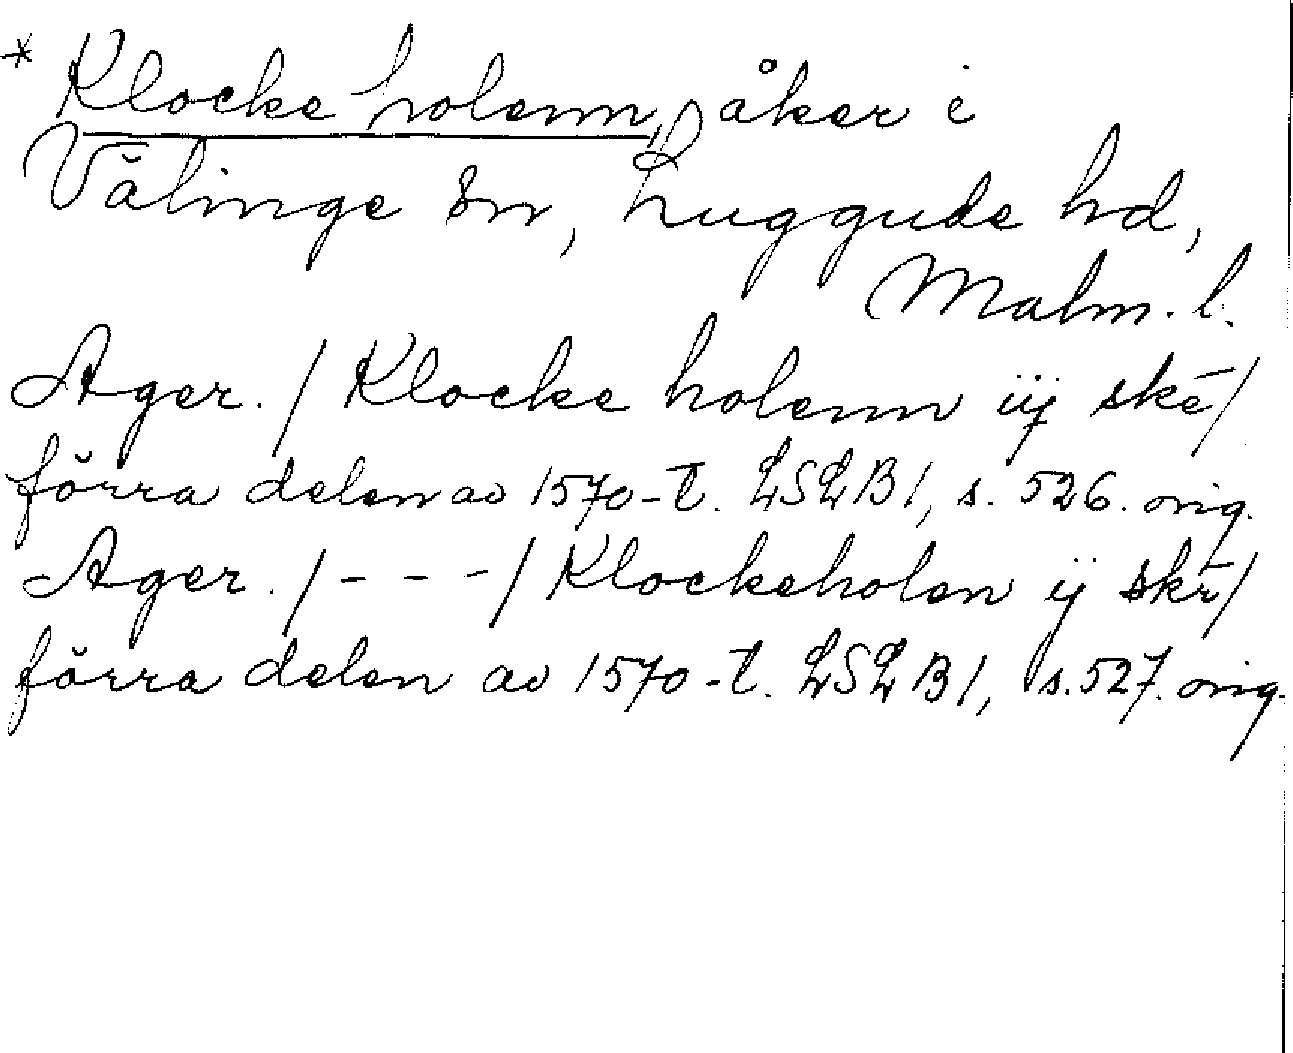 * Klocke holenn, åker i
Välinge sn, Luggude hd,
Malm. l.
Ager. / Klocke holenn iij skē /
förra delen av 1570-t. LSLB1, s. 526. orig.
Ager. / - - - / Klockeholen ij skr̄ /
förra delen av 1570-t. LSLB1, s. 527. orig.